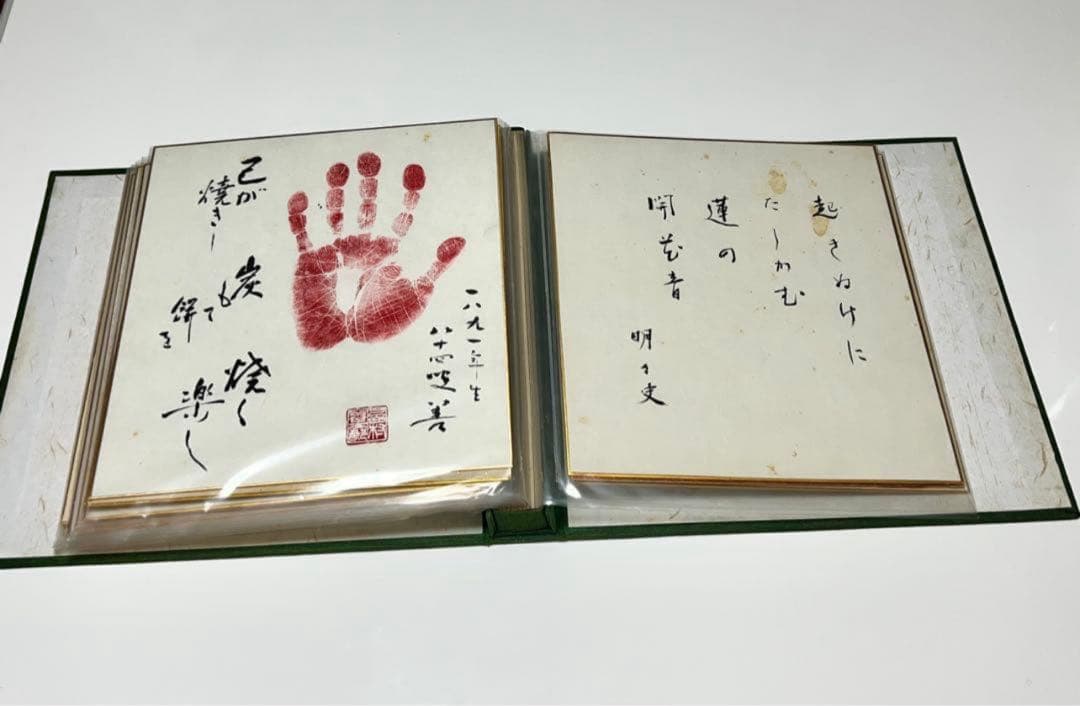 起きぬけに
たしかむ
蓮の
開花音
己が
焼きし
炭も
て
餅を
焼く
楽し
一八九一年生
八十四叟 善